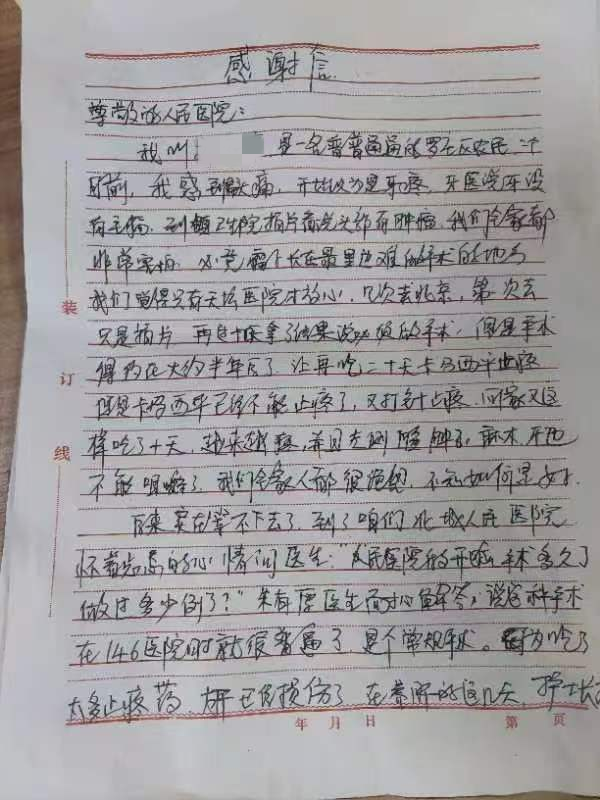 感谢信
尊敬的人民医院：
我叫 是一名普普通通的 区农民 个
月前，我感到 痛，开始以为是牙疼，牙医说牙没
有毛病，到 卫生院拍片 说头部有肿瘤，我们全家都
非常害怕，必竟瘤子长在最里边难做手术的地方
我们觉得只有天坛医院才放心，几次去北京，第一次去
只是拍片，再 十天拿了结果说必须做手术，但是手术
得约在大约半年后了，让再吃二十天卡马西平止疼
但是卡马西平已经不能止疼了，又打针止疼，回家又这
样吃了十天，越来越疼，并且左侧 肿了，麻木，牙也
不能咀嚼了，我们全家人都很 ，不知如何是好。
后来实在等不下去了，到了咱们北城人民医院
怀着 的心情问医生：“人民医院能开哪，手术多久了
做过多少例了？”朱有 医生面对心 解答，说这种手术
在146医院时就很普遍了，是个常规手术。因为吃了
太多止疼药，肝已经损伤了，在 的这几天，护士长
装
订
线
年 月 日
第 页